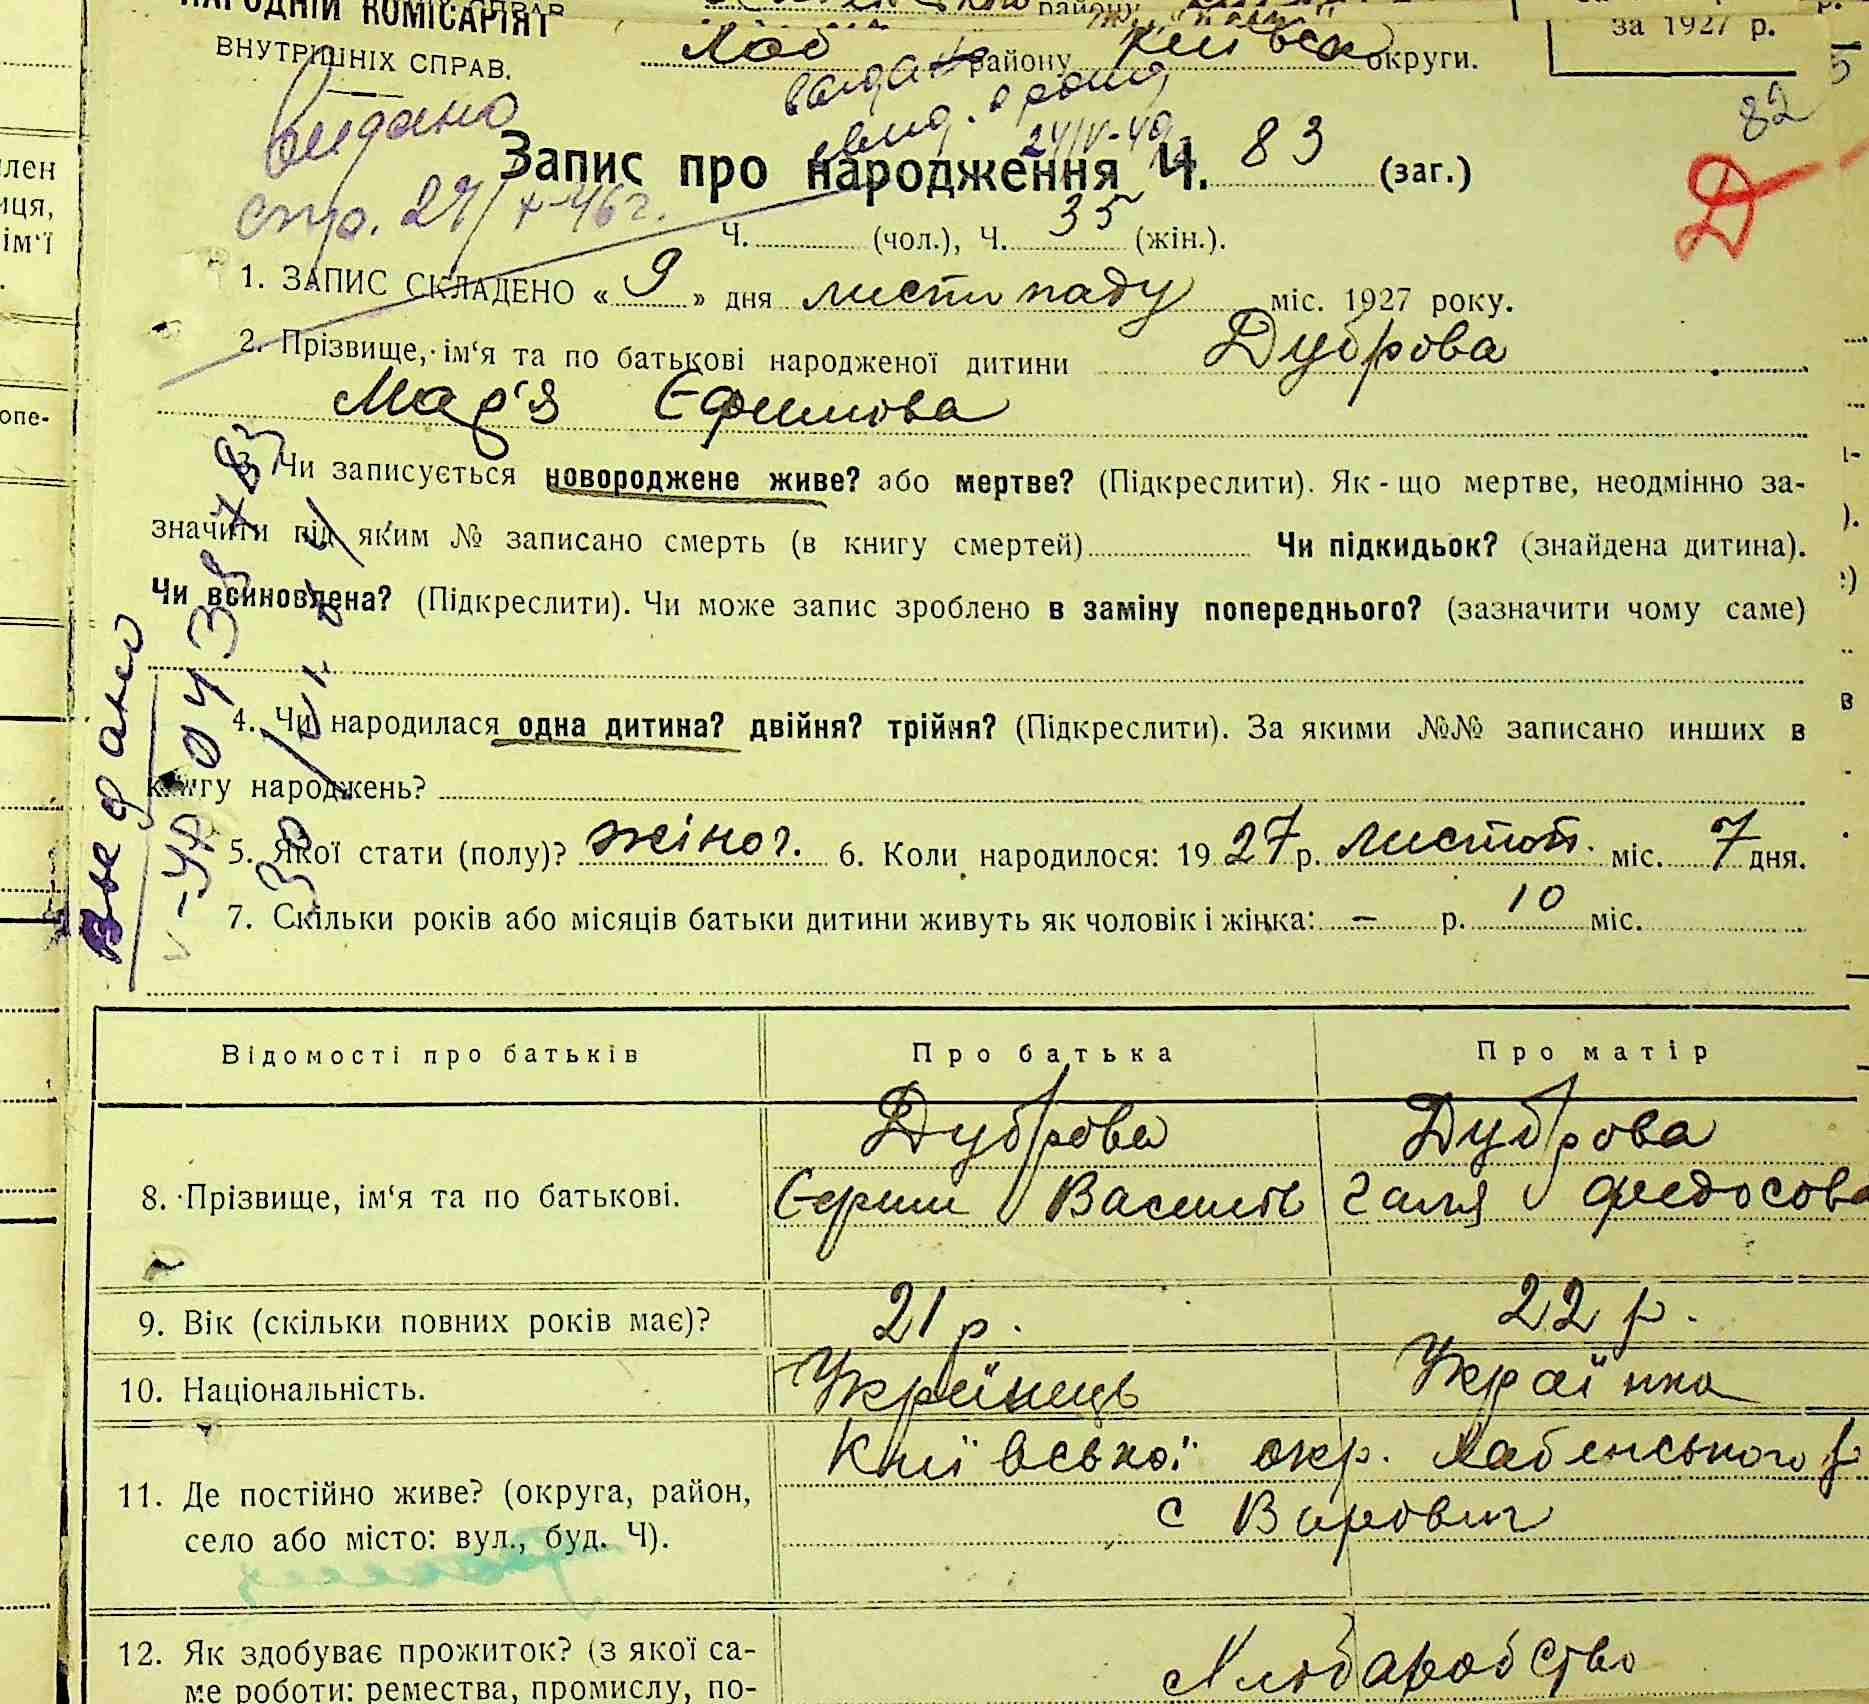 НАРОДНІЙ КОМІСАРІЯТ
ВНУТРІШНІХ СПРАВ.
Хаб району Київськ округи.
за 1927 р.
82
видано
стр. 27/X-46 г.
24/V-49
Запис про народження Ч. 83 (заг.)
Д
Ч. (чол.), Ч. 35 (жін.).
1. ЗАПИС СКЛАДЕНО « 9 » дня листопаду міс. 1927 року.
2. Прізвище, ім‘я та по батькові народженої дитини Дуброва
Мар'я Єфимова
3. Чи записується новороджене живе? або мертве? (Підкреслити). Як - що мертве, неодмінно за-
значити під яким № записано смерть (в книгу смертей) Чи підкидьок? (знайдена дитина).
Чи всиновлена? (Підкреслити). Чи може запис зроблено в заміну попереднього? (зазначити чому саме)
4. Чи народилася одна дитина? двійня? трійня? (Підкреслити). За якими №№ записано инших в
книгу народжень?
5. Якої стати (полу)? жіноч. 6. Коли народилося: 19 27 р. листоп. міс. 7 дня.
7. Скільки років або місяців батьки дитини живуть як чоловік і жінка: — р. 10 міс.
Відомості про батьків Про батька Про матір
Дуброва Дуброва
8. Прізвище, ім‘я та по батькові. Єфим Василів Галя Федосова
9. Вік (скільки повних років має)? 21 р. 22 р.
10. Національність. Українець Українка
Київської окр. Хабенського р
11. Де постійно живе? (округа, район,
с Варовичі
село або місто: вул., буд. Ч).
12. Як здобуває прожиток? (з якої са-
Хліборобство
ме роботи: ремества, промислу, по-